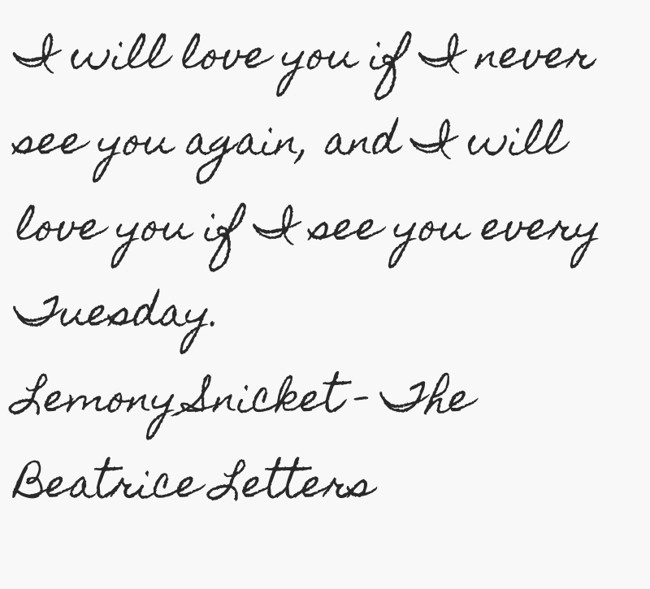 I will love you if I never
see you again, and I will
love you if I see you every
Tuesday.
Lemony Snicket - The
Beatrice Letters